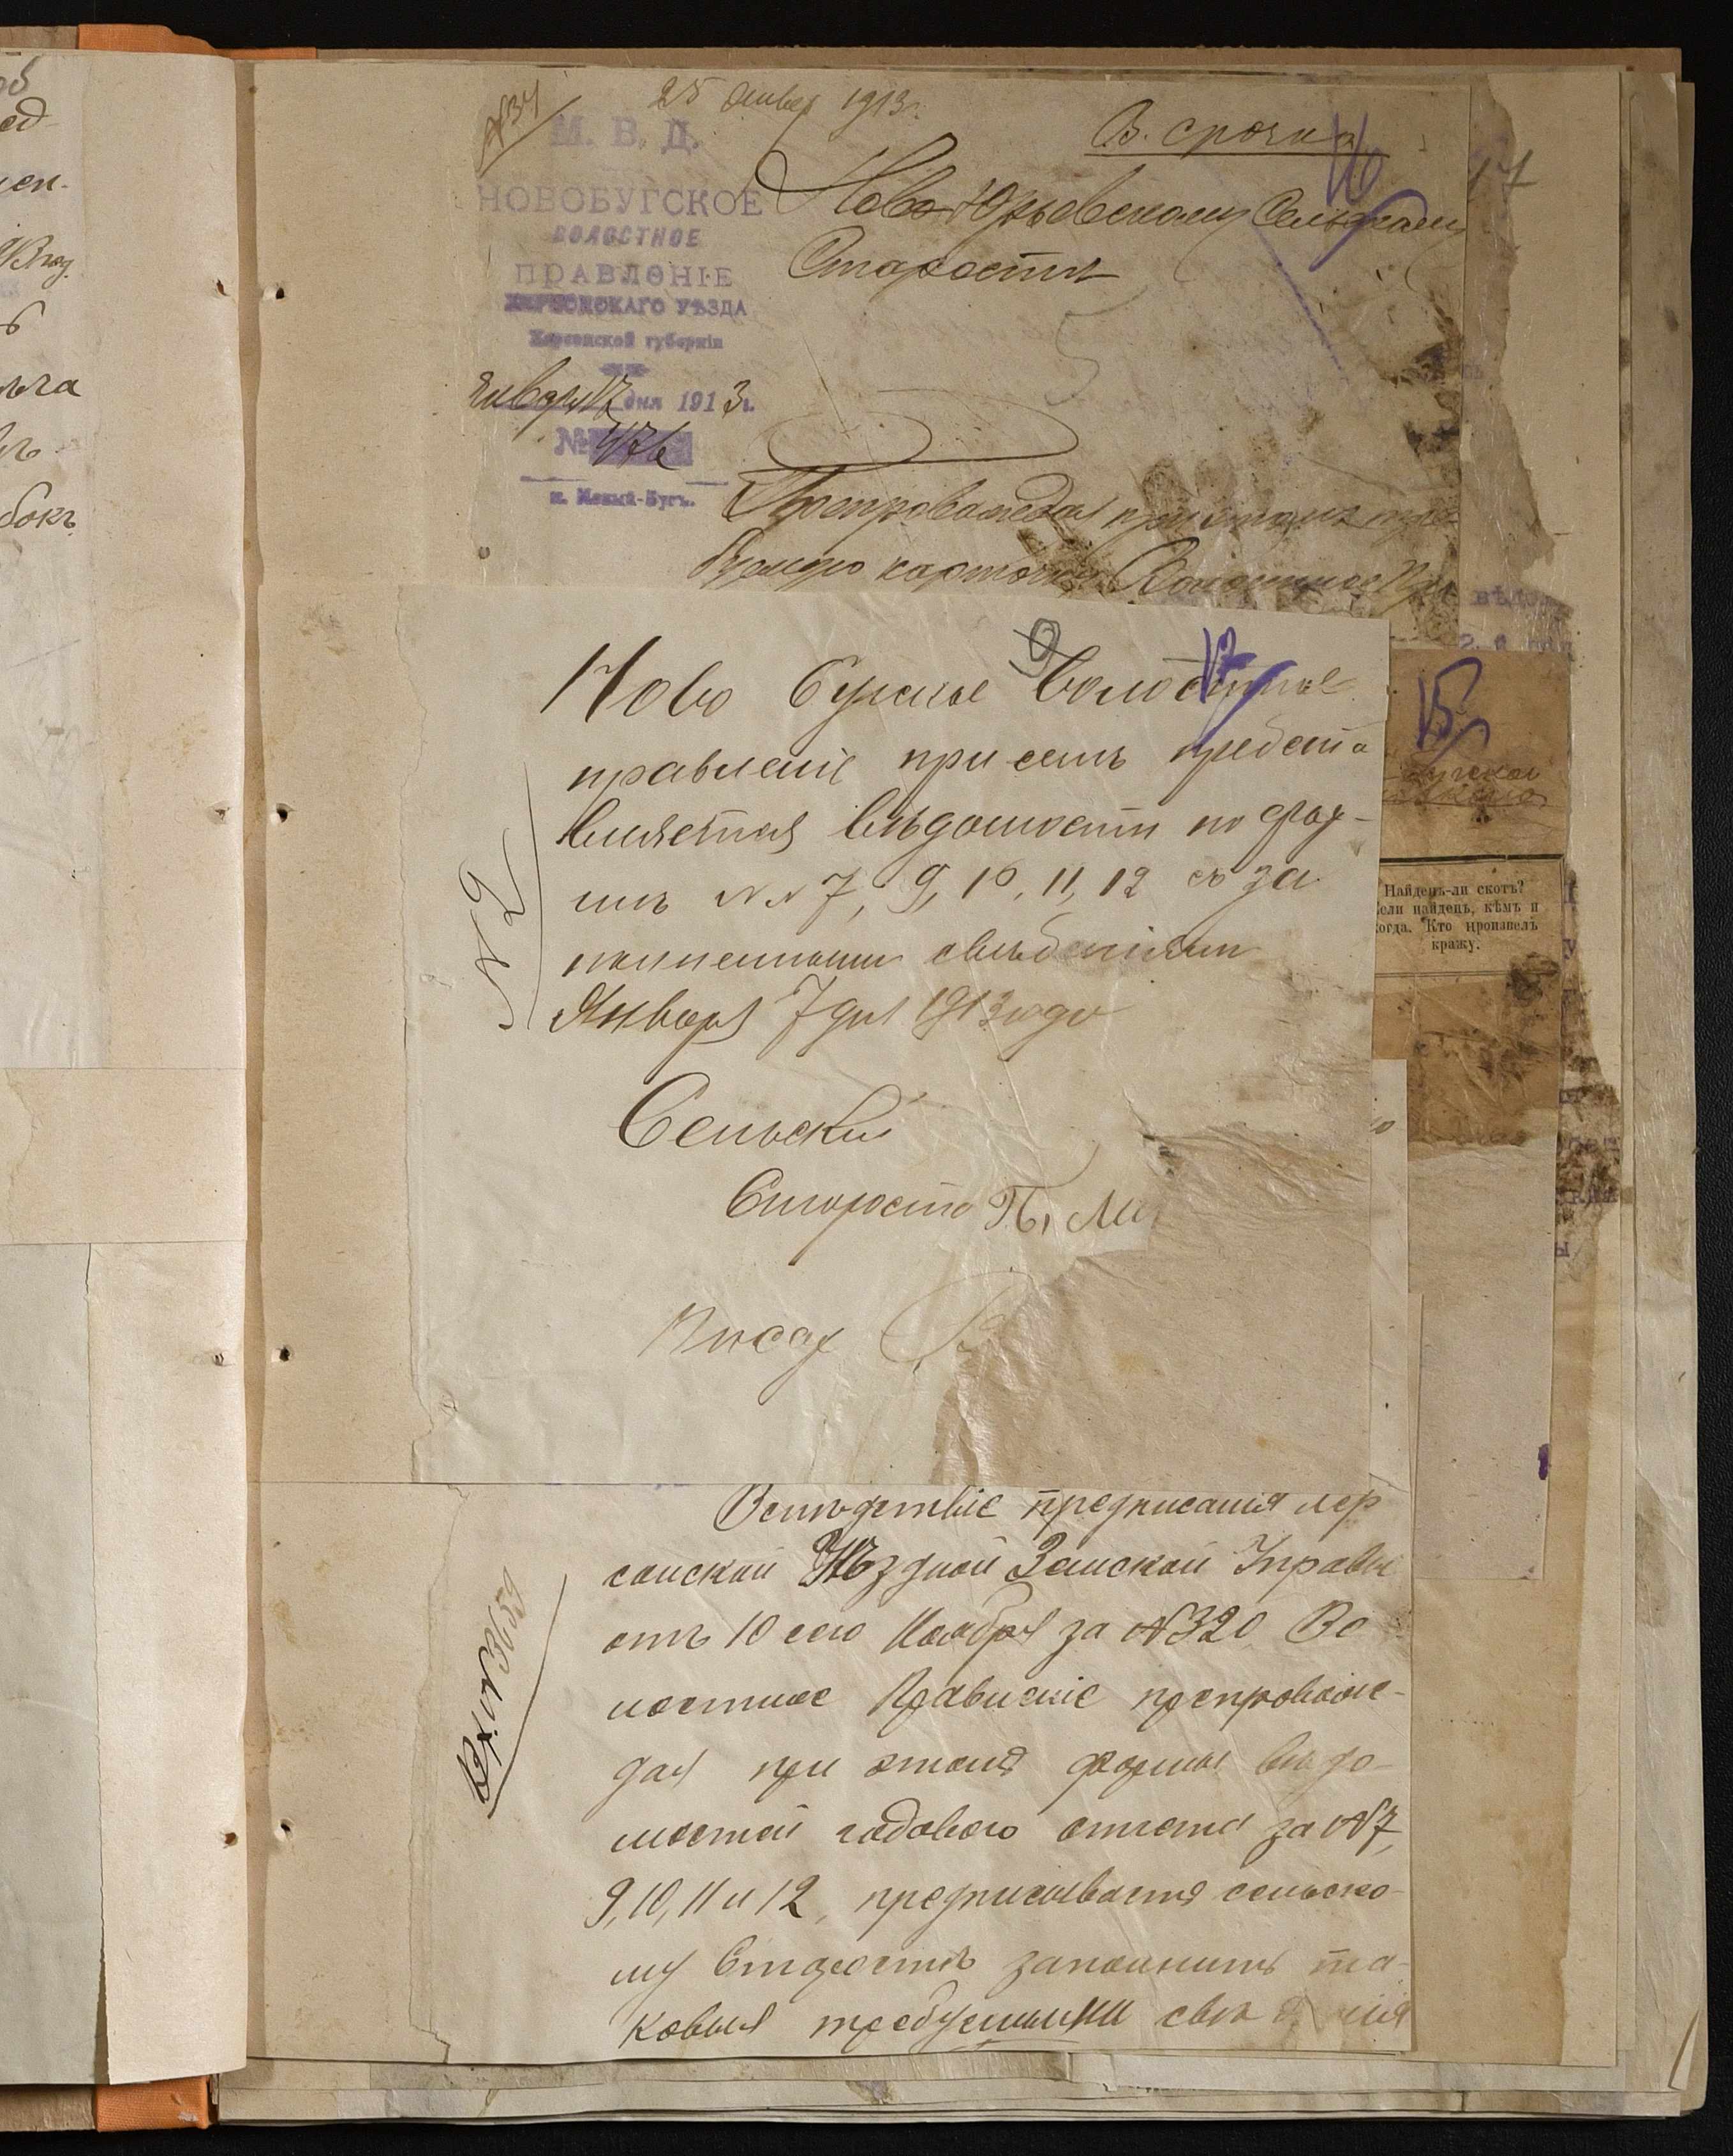 № 34
25 Январ 1913 г.
В. срочно
16
17
М. В. Д.
НОВОБУГСКОЕ
ВОЛОСТНОЕ
ПРАВЛЕНІЕ
ХЕРСОНСКАГО УѢЗДА
Херсонской губерніи
Января 17 дня 1913 г.
№ 476
м. Новый-Бугъ.
Ново-Юрьевскому Сельскому
Старостѣ
Препровождая при этомъ тре-
буемую карточку Волостное Пра
9
17
Ново Бугское Волостное
правленіе при семъ предста
вляется вѣдомости по фор-
мѣ №№ 7, 9, 10, 11, 12 съ за
полненными свѣденіями
Января 7 дня 1913 года
№ 2
Сельскій
Староста П. Ми
Писар
15
Найденъ-ли скотъ?
Если найденъ, кѣмъ и
когда. Кто произвелъ
кражу.
Вслѣдствіе предписанія Хер
сонской Уѣздной Земской Управы
отъ 10 сего Ноября за № 320 Во
лостное Правленіе препровож-
дая при этомъ формы вѣдо-
мостей годового отчета за № 7,
9, 10, 11 и 12, предписывается сельско-
му Старостѣ заполнить та-
ковыя требуемыми свѣденія
Вх. № 3659